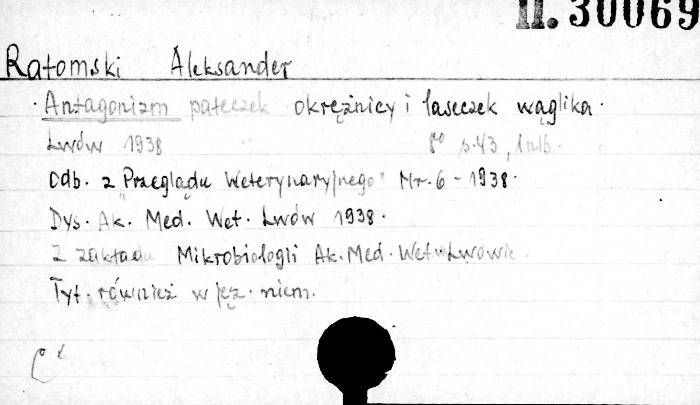 II. 30069
Ratomski Aleksander
Antagonizm pałeczek okrężnicy i laseczek wąglika.
Lwów 1938 8° s. 43, 1 nlb.
Odb. z "Przeglądu Weterynaryjnego" Nr. 6 - 1938.
Dys. Ak. Med. Wet. Lwów 1938.
Z zakładu Mikrobiologii Ak. Med. Wet. w Lwowie.
Tyt. również w jęz. niem.